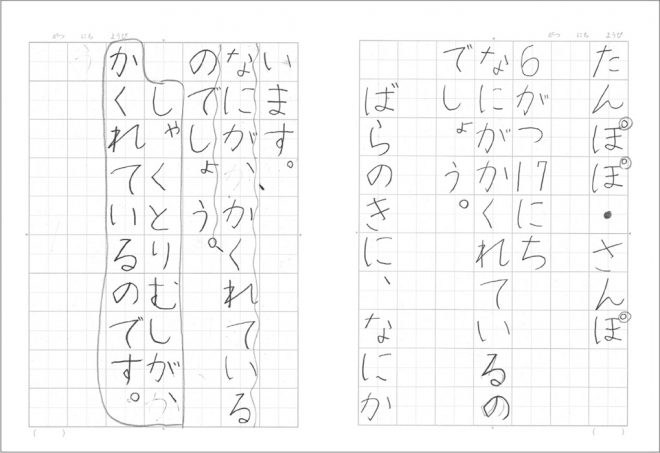 がつ にち ようび
たんぽぽ・さんぽ
6がつ17にち
なにがかくれているの
でしょう。
ばらのきに、なにか
がつ にち ようび
います。
なにが、かくれている
のでしょう。
しゃくとりむしが、
かくれているのです。